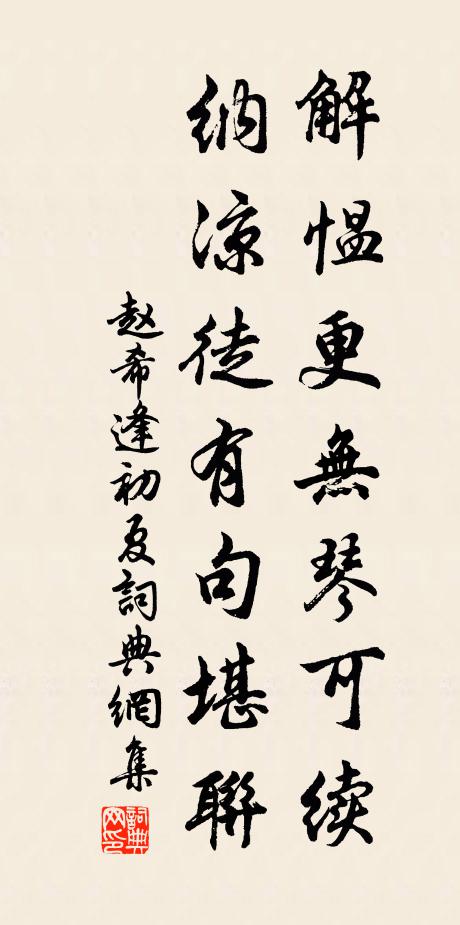 解愠更無琴可续
纳凉徒有句堪聯
赵希逢初夏詞典網集
詞典网印